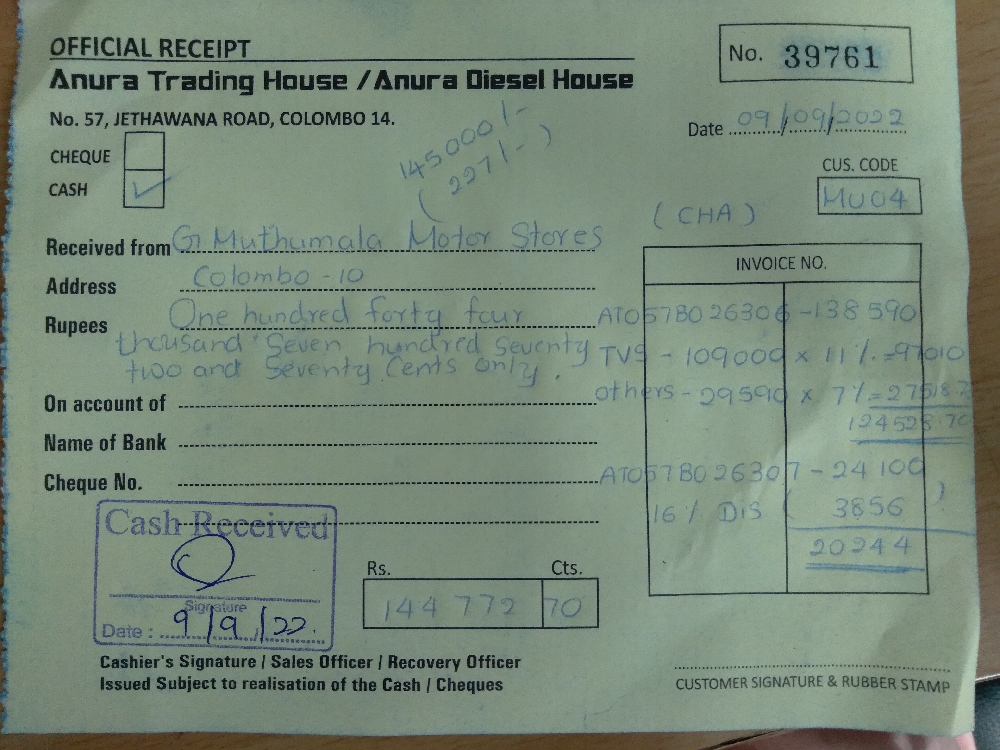 OFFICIAL RECEIPT
No. 39761
Anura Trading House / Anura Diesel House
No. 57, JETHAWANA ROAD, COLOMBO 14.
Date 09/09/2022
CHEQUE
CASH ✓
145000/-
(227/-)
CUS. CODE
MU04
(CHA)
Received from G Muthumala Motor Stores
Address Colombo - 10
Rupees One hundred forty four
thousand Seven hundred Seventy
two and Seventy Cents only.
On account of
Name of Bank
Cheque No.
INVOICE NO.
AT057B026306 - 138 590
TVS - 109000 x 11 % = 97010
others - 29590 x 7 % = 27518.70
124528 70
AT057B026307 - 24 100
16 % DIS ( 3856 )
20244
Cash Received
Signature
Date : 9/9/22.
Rs. Cts.
144 772 70
Cashier's Signature / Sales Officer / Recovery Officer
Issued Subject to realisation of the Cash / Cheques
CUSTOMER SIGNATURE & RUBBER STAMP